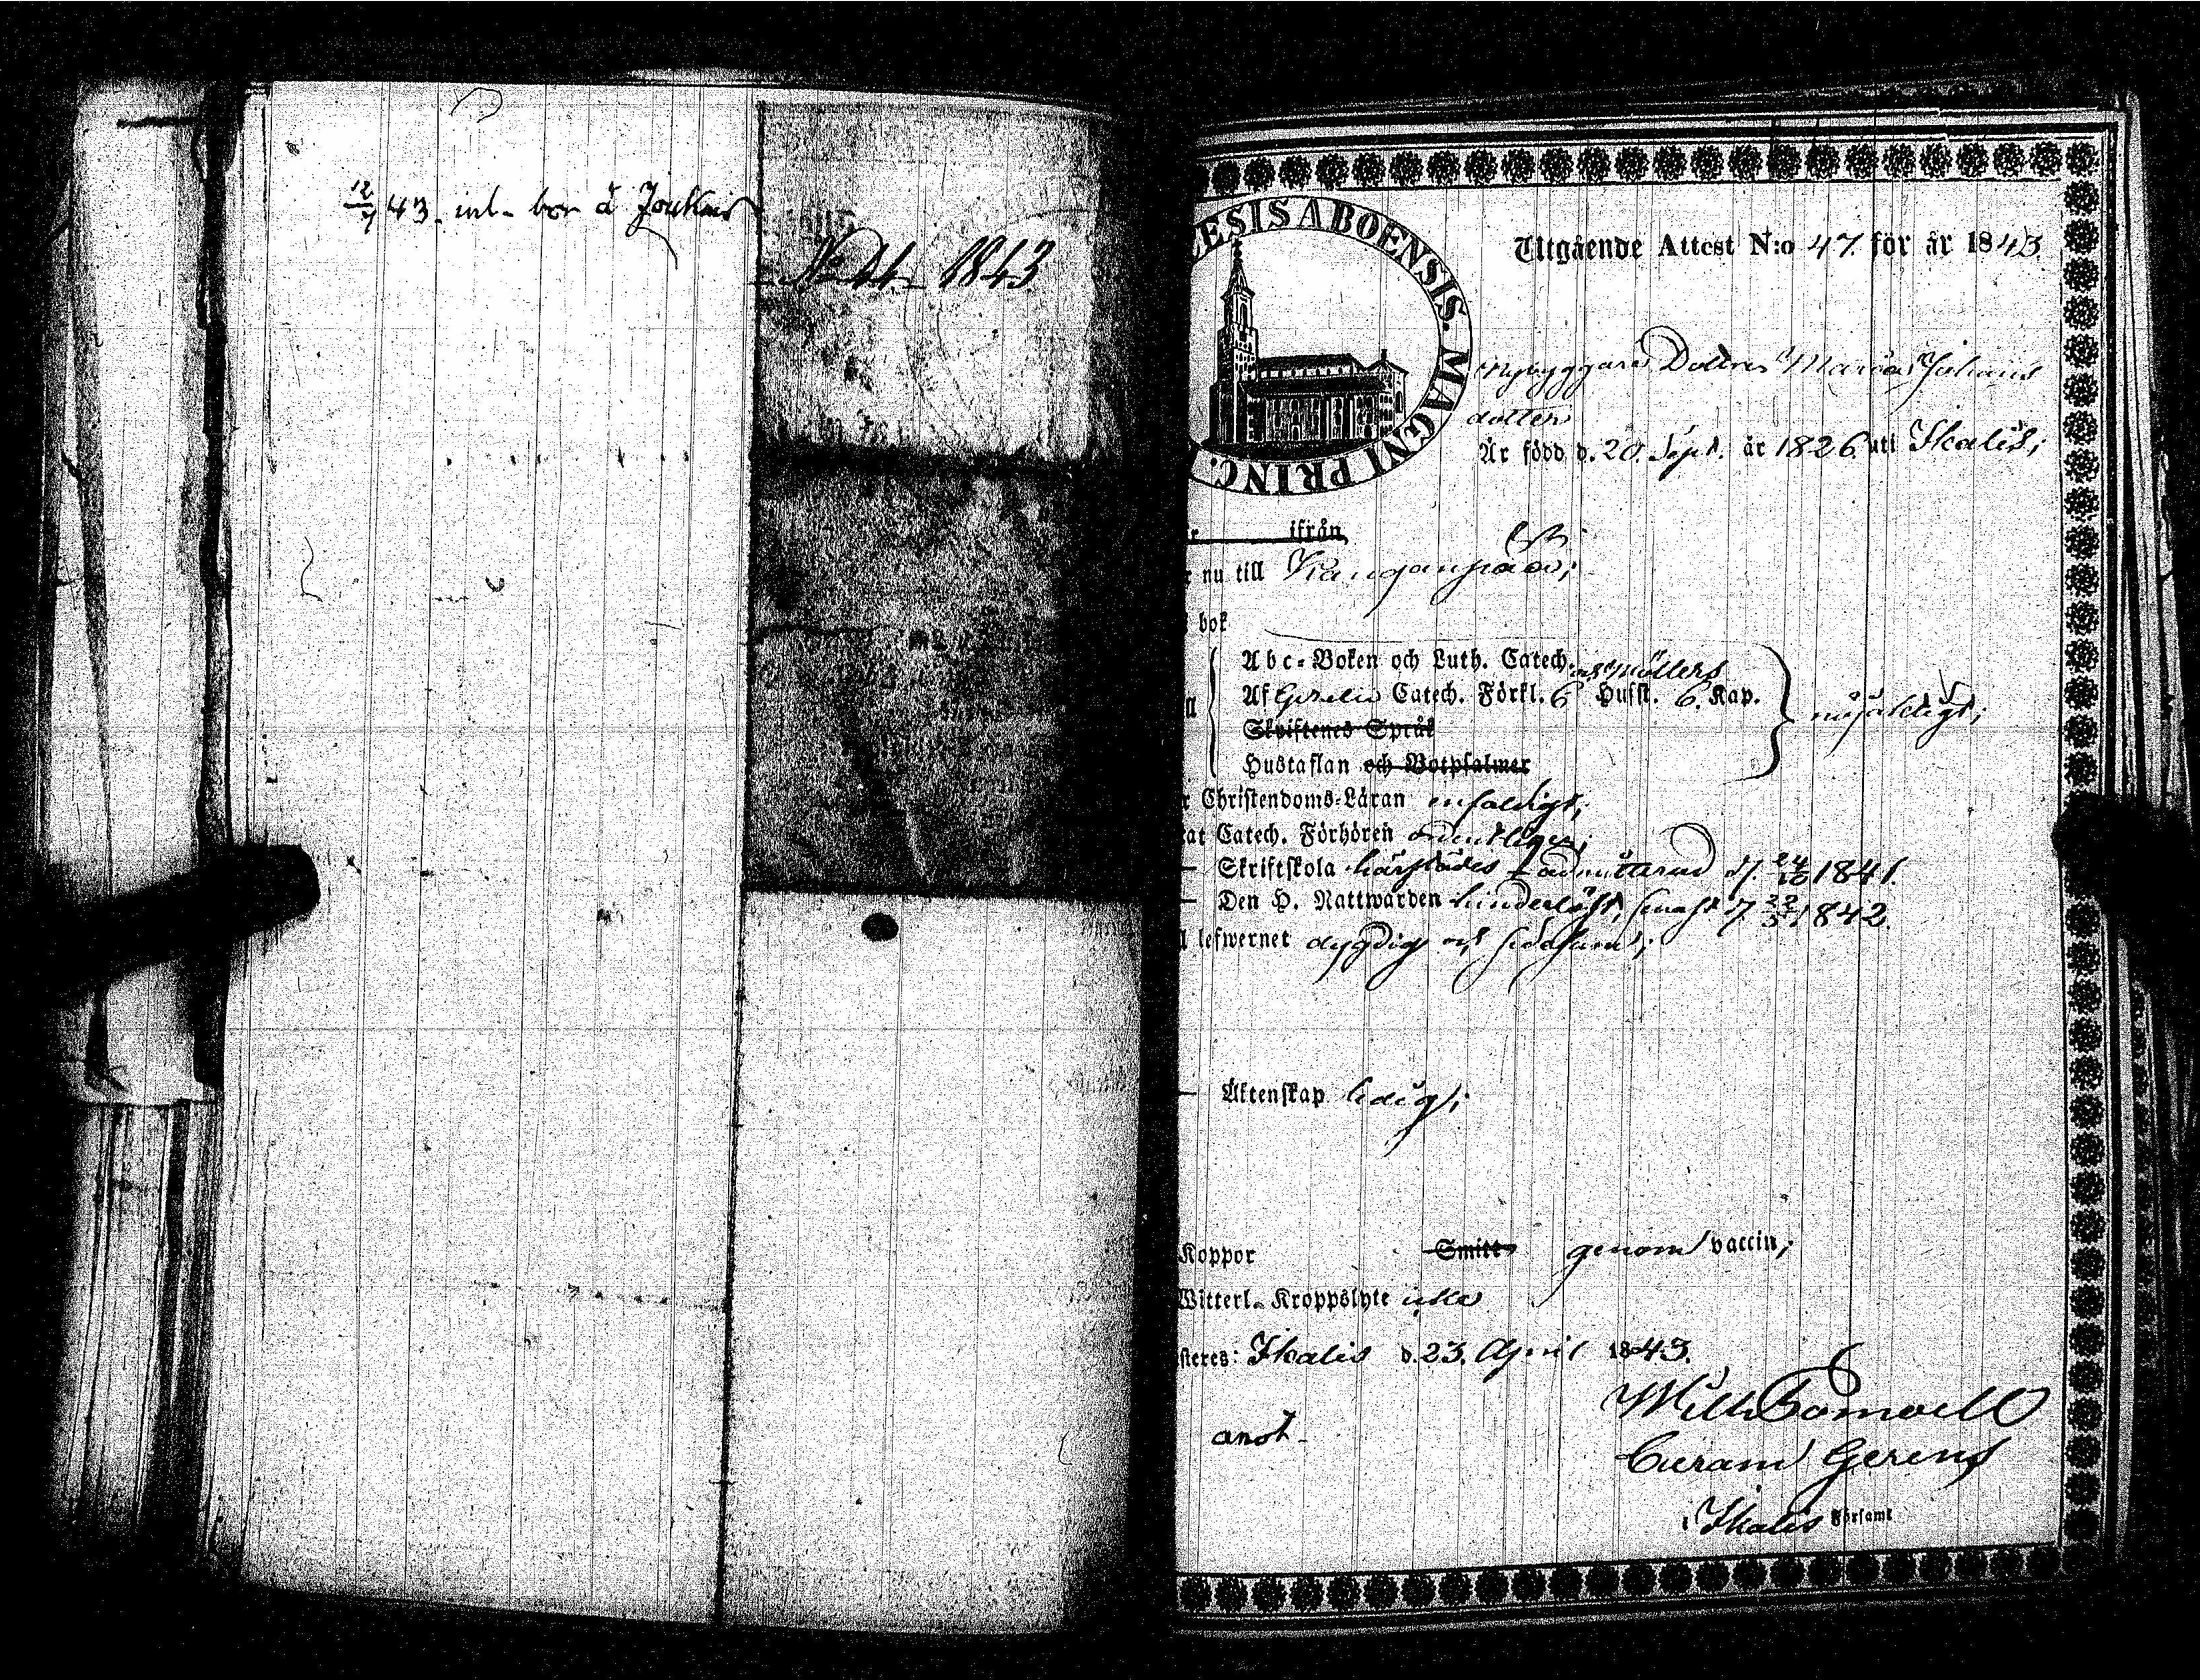 12/7 43. inl. bor å Joukais
No 44 1843
ESIS ABOENSIS. MAGNI PRINC.
Utgående Attest N:o 47. för år 1843
Nybyggare Dottren Maria Johans
dotter
Är född d. 20. Sept. år 1826 uti Ikalis;
ifrån
nu till Kanganpää;
bok
Abc-Boken och Luth. Catech.
Af Catech. Förkl. 6 Hufst. 6. Kap.
Skriftenes Språk
Hustaflan och Botpsalmer
Christendoms-Läran enfaldigt;
at Catech. Förhören ordentligen;
Skriftskola härstädes admitterad d. 24/10 1841.
Den H. Nattwarden hinderlöst, senast d. 22/5 1842.
lefwernet dygdig och
Äktenskap ledig;
Koppor Smitt genom vaccin;
Witterl. Kroppslyte icke
steres: Ikalis d. 23. April 1843.
anot.
Curam Gerens
i Ikalis Församl